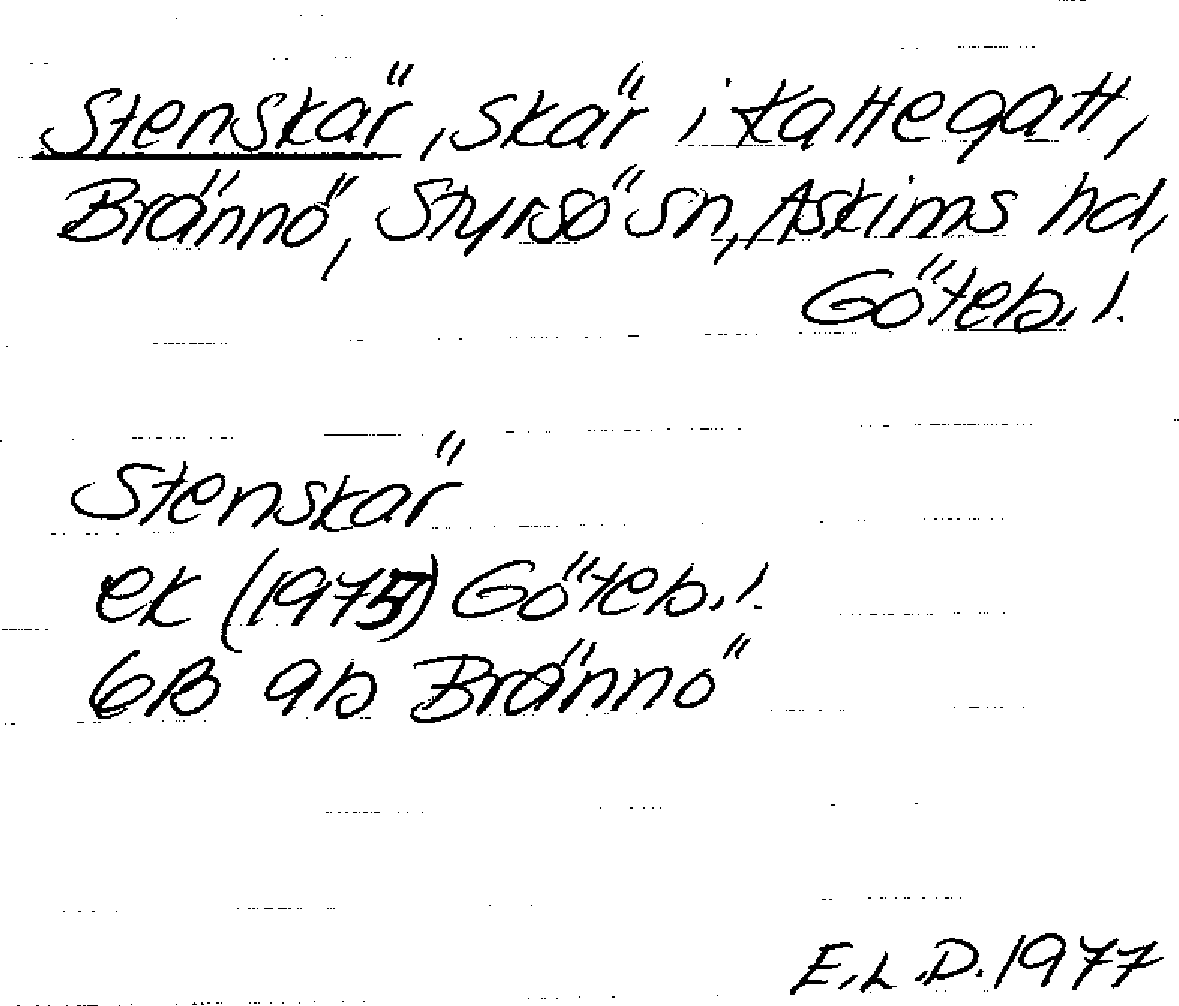 Stenskär, skär i Kattegatt,
Brännö, Styrsö sn, Askims hd,
Göteb. l.
Stenskär
ek (1975) Göteb. l.
6B 9b Brännö
E.L.D. 1977